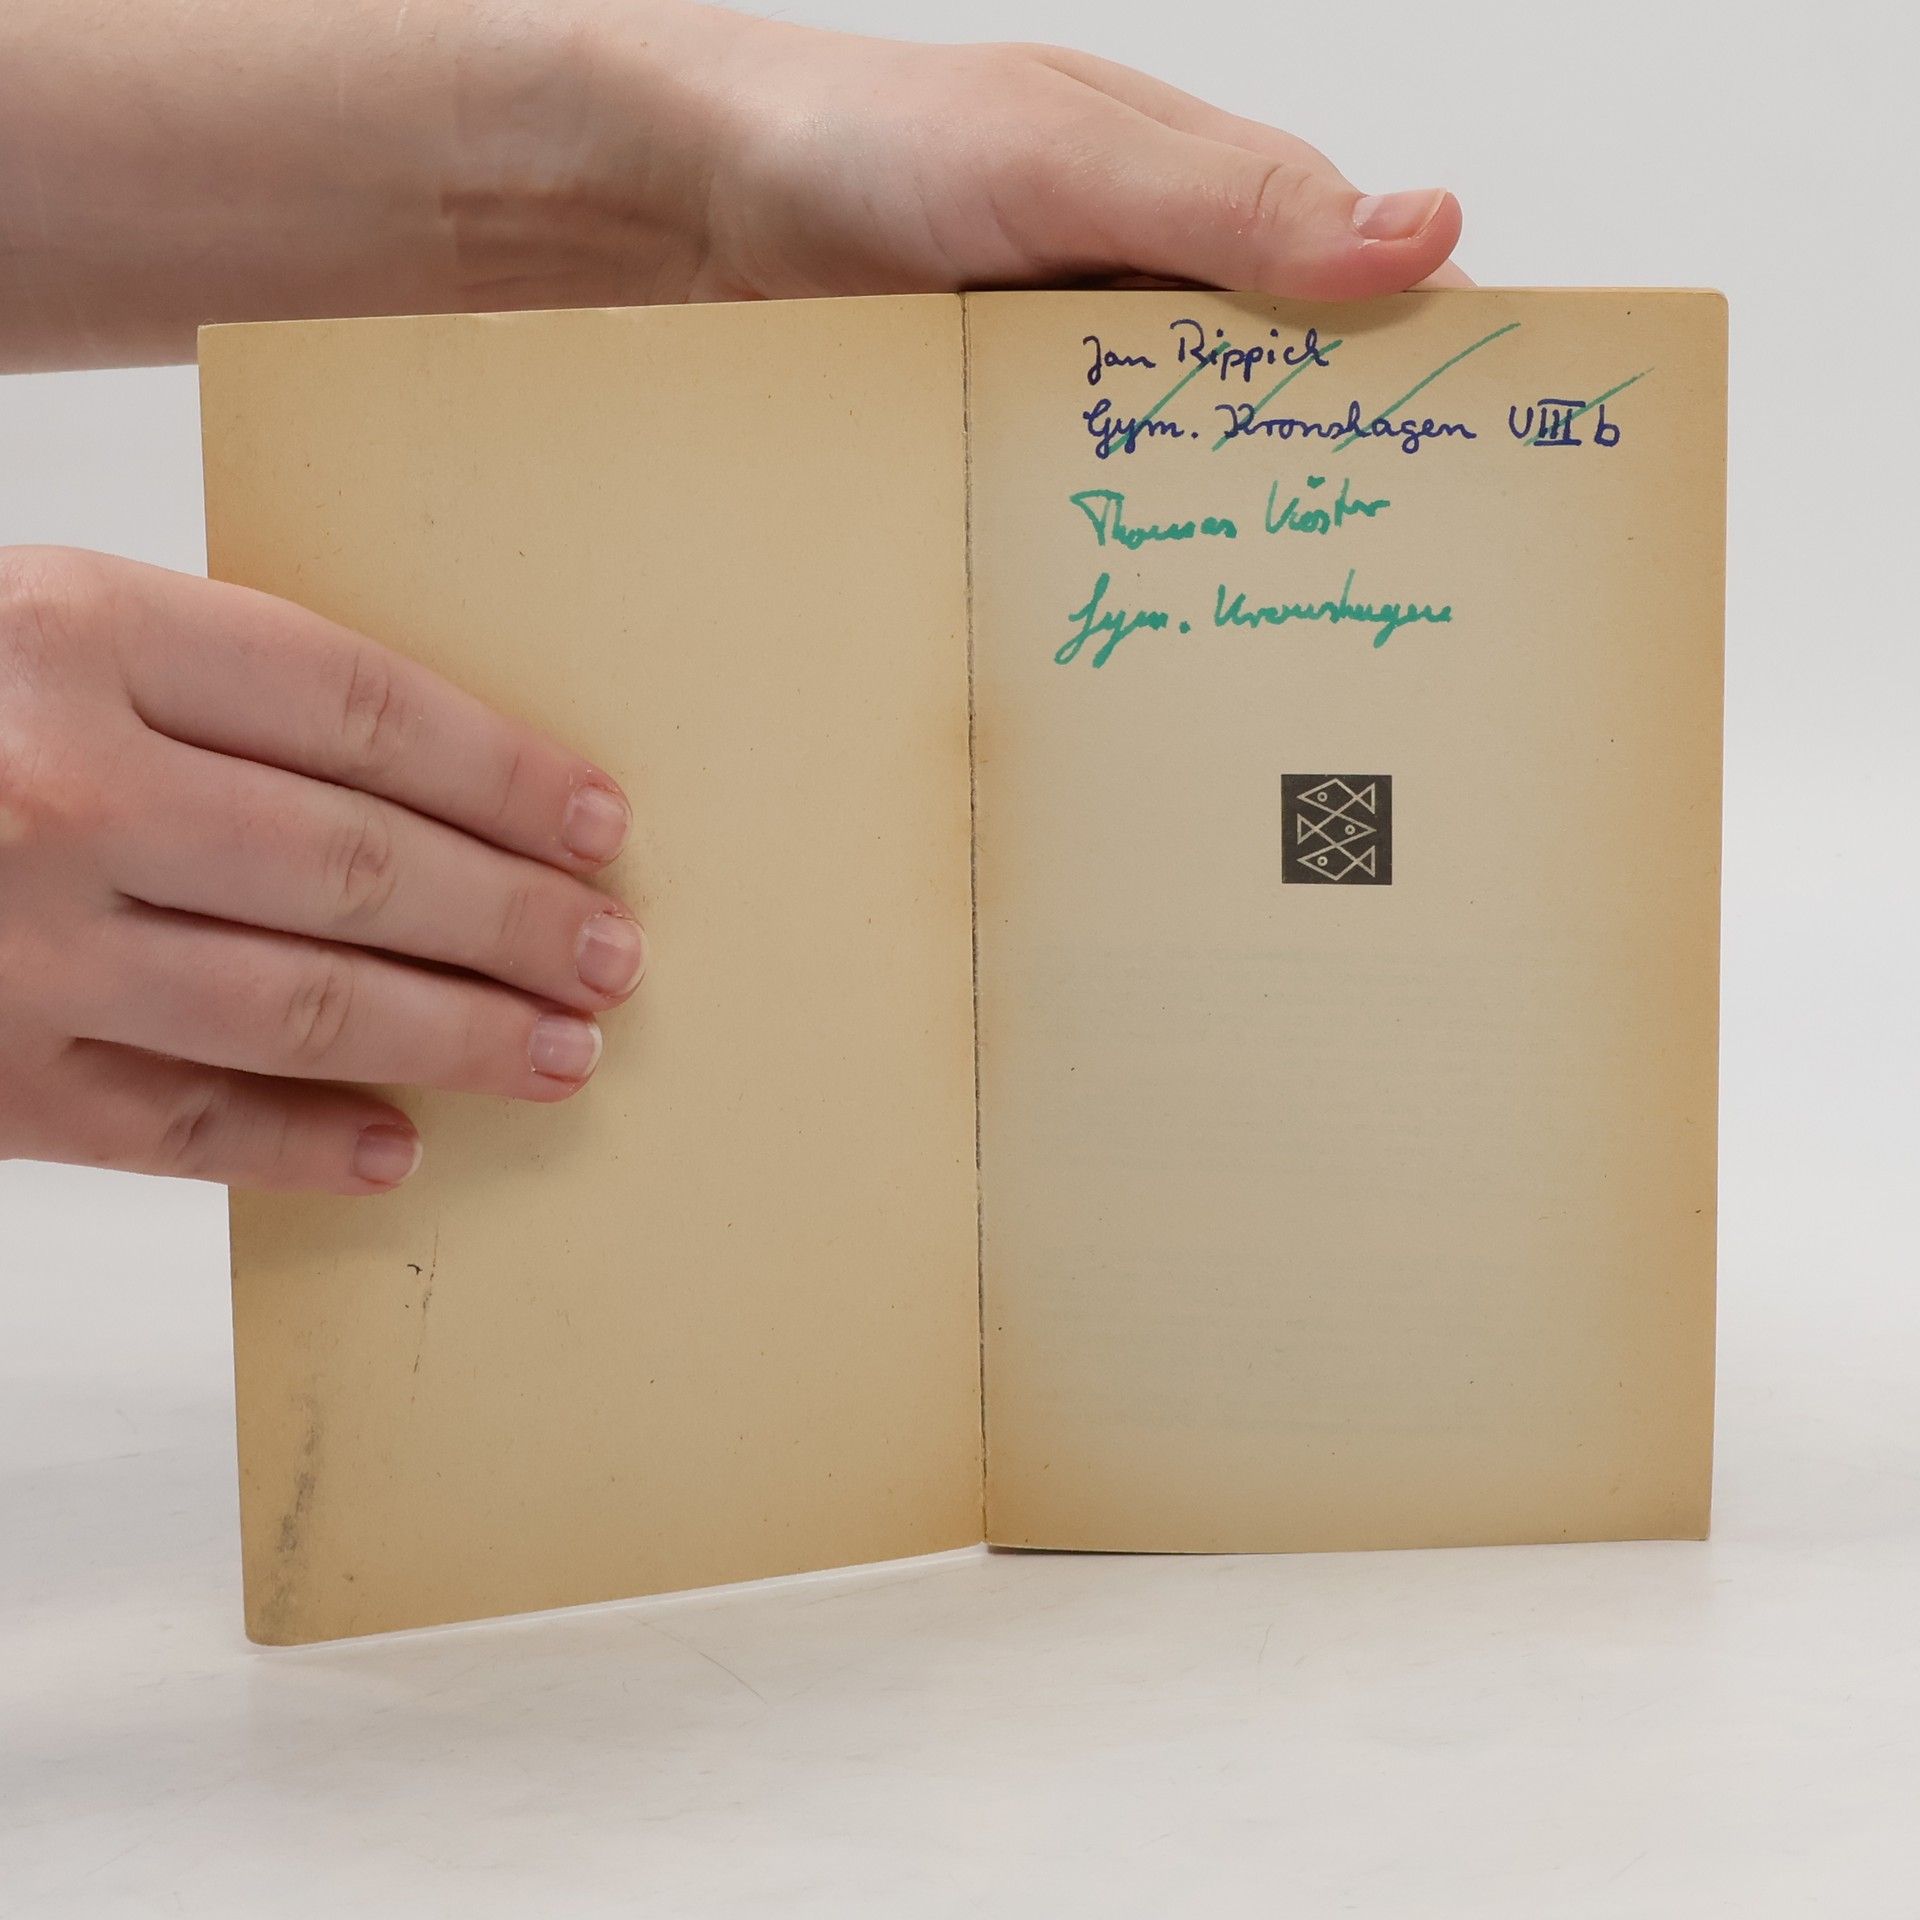 Jan Rippich
Gym. Kronshagen UIII b
Thomas Köster
Gym. Kronshagen